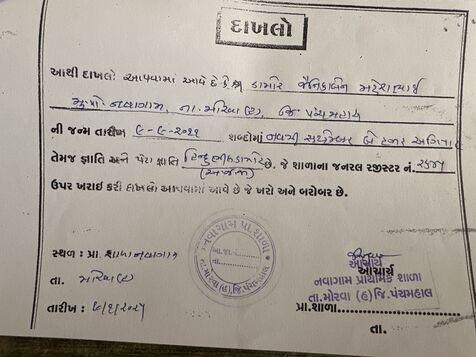 દાખલો
આથી દાખલો આપવામાં આવે છે કે, ડામોર જૈનિકાબેન મહેશભાઈ
મુ.પો નવાગામ, તા. મોરવા(હ), જિ પંચમહાલ
ની જન્મ તારીખ ૯-૯-૨૦૧૧ શબ્દોમાં નવમી સપ્ટેમ્બર બે હજાર અગિયાર
તેમજ જ્ઞાતિ અને પેટા જ્ઞાતિ હિન્દુ ડામોર છે. જે શાળાના જનરલ રજીસ્ટર નં.
ઉપર ખરાઈ કરી દાખલો આપવામાં આવે છે જે ખરો અને બરોબર છે.
સ્થળ : પ્રા. શાળા નવાગામ
તા. મોરવા(હ)
તારીખ :
નવાગામ પ્રા.શાળા
તા.મોરવા (હ),જિ.પંચમહાલ
આચાર્ય
આચાર્ય
નવાગામ પ્રાથમિક શાળા
તા.મોરવા (હ) જિ.પંચમહાલ
પ્રા.શાળા
તા.